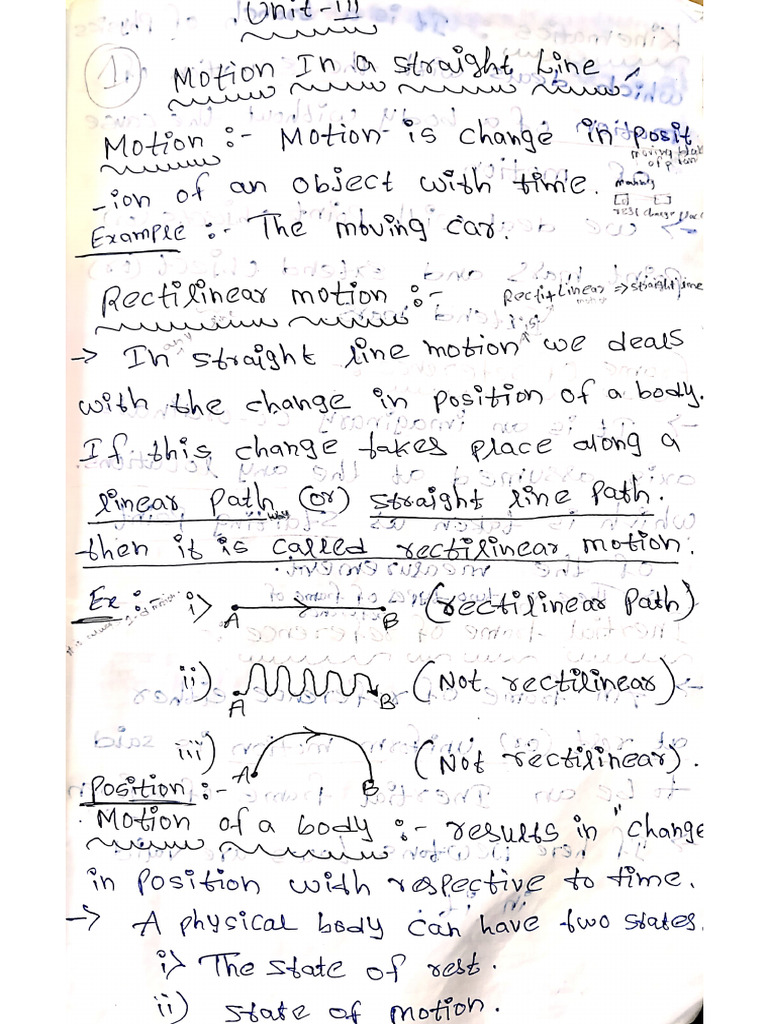 Unit-III
1. Motion In a straight Line
Motion :- Motion is change in posit
-ion of an object with time.
Example :- The moving car.
Rectilinear motion :-
Recti + Linear => straight line
any
-> In straight line motion we deals
with the change in position of a body.
If this change takes place along a
linear path (or) straight line path.
way
then it is called rectilinear motion.
Ex :- i> A B (rectilinear path)
ii) A B (Not rectilinear)
iii) A B (Not rectilinear).
Position :-
Motion of a body :- results in "change
in position with respective to time.
-> A physical body can have two states.
i> The state of rest.
ii) state of motion.